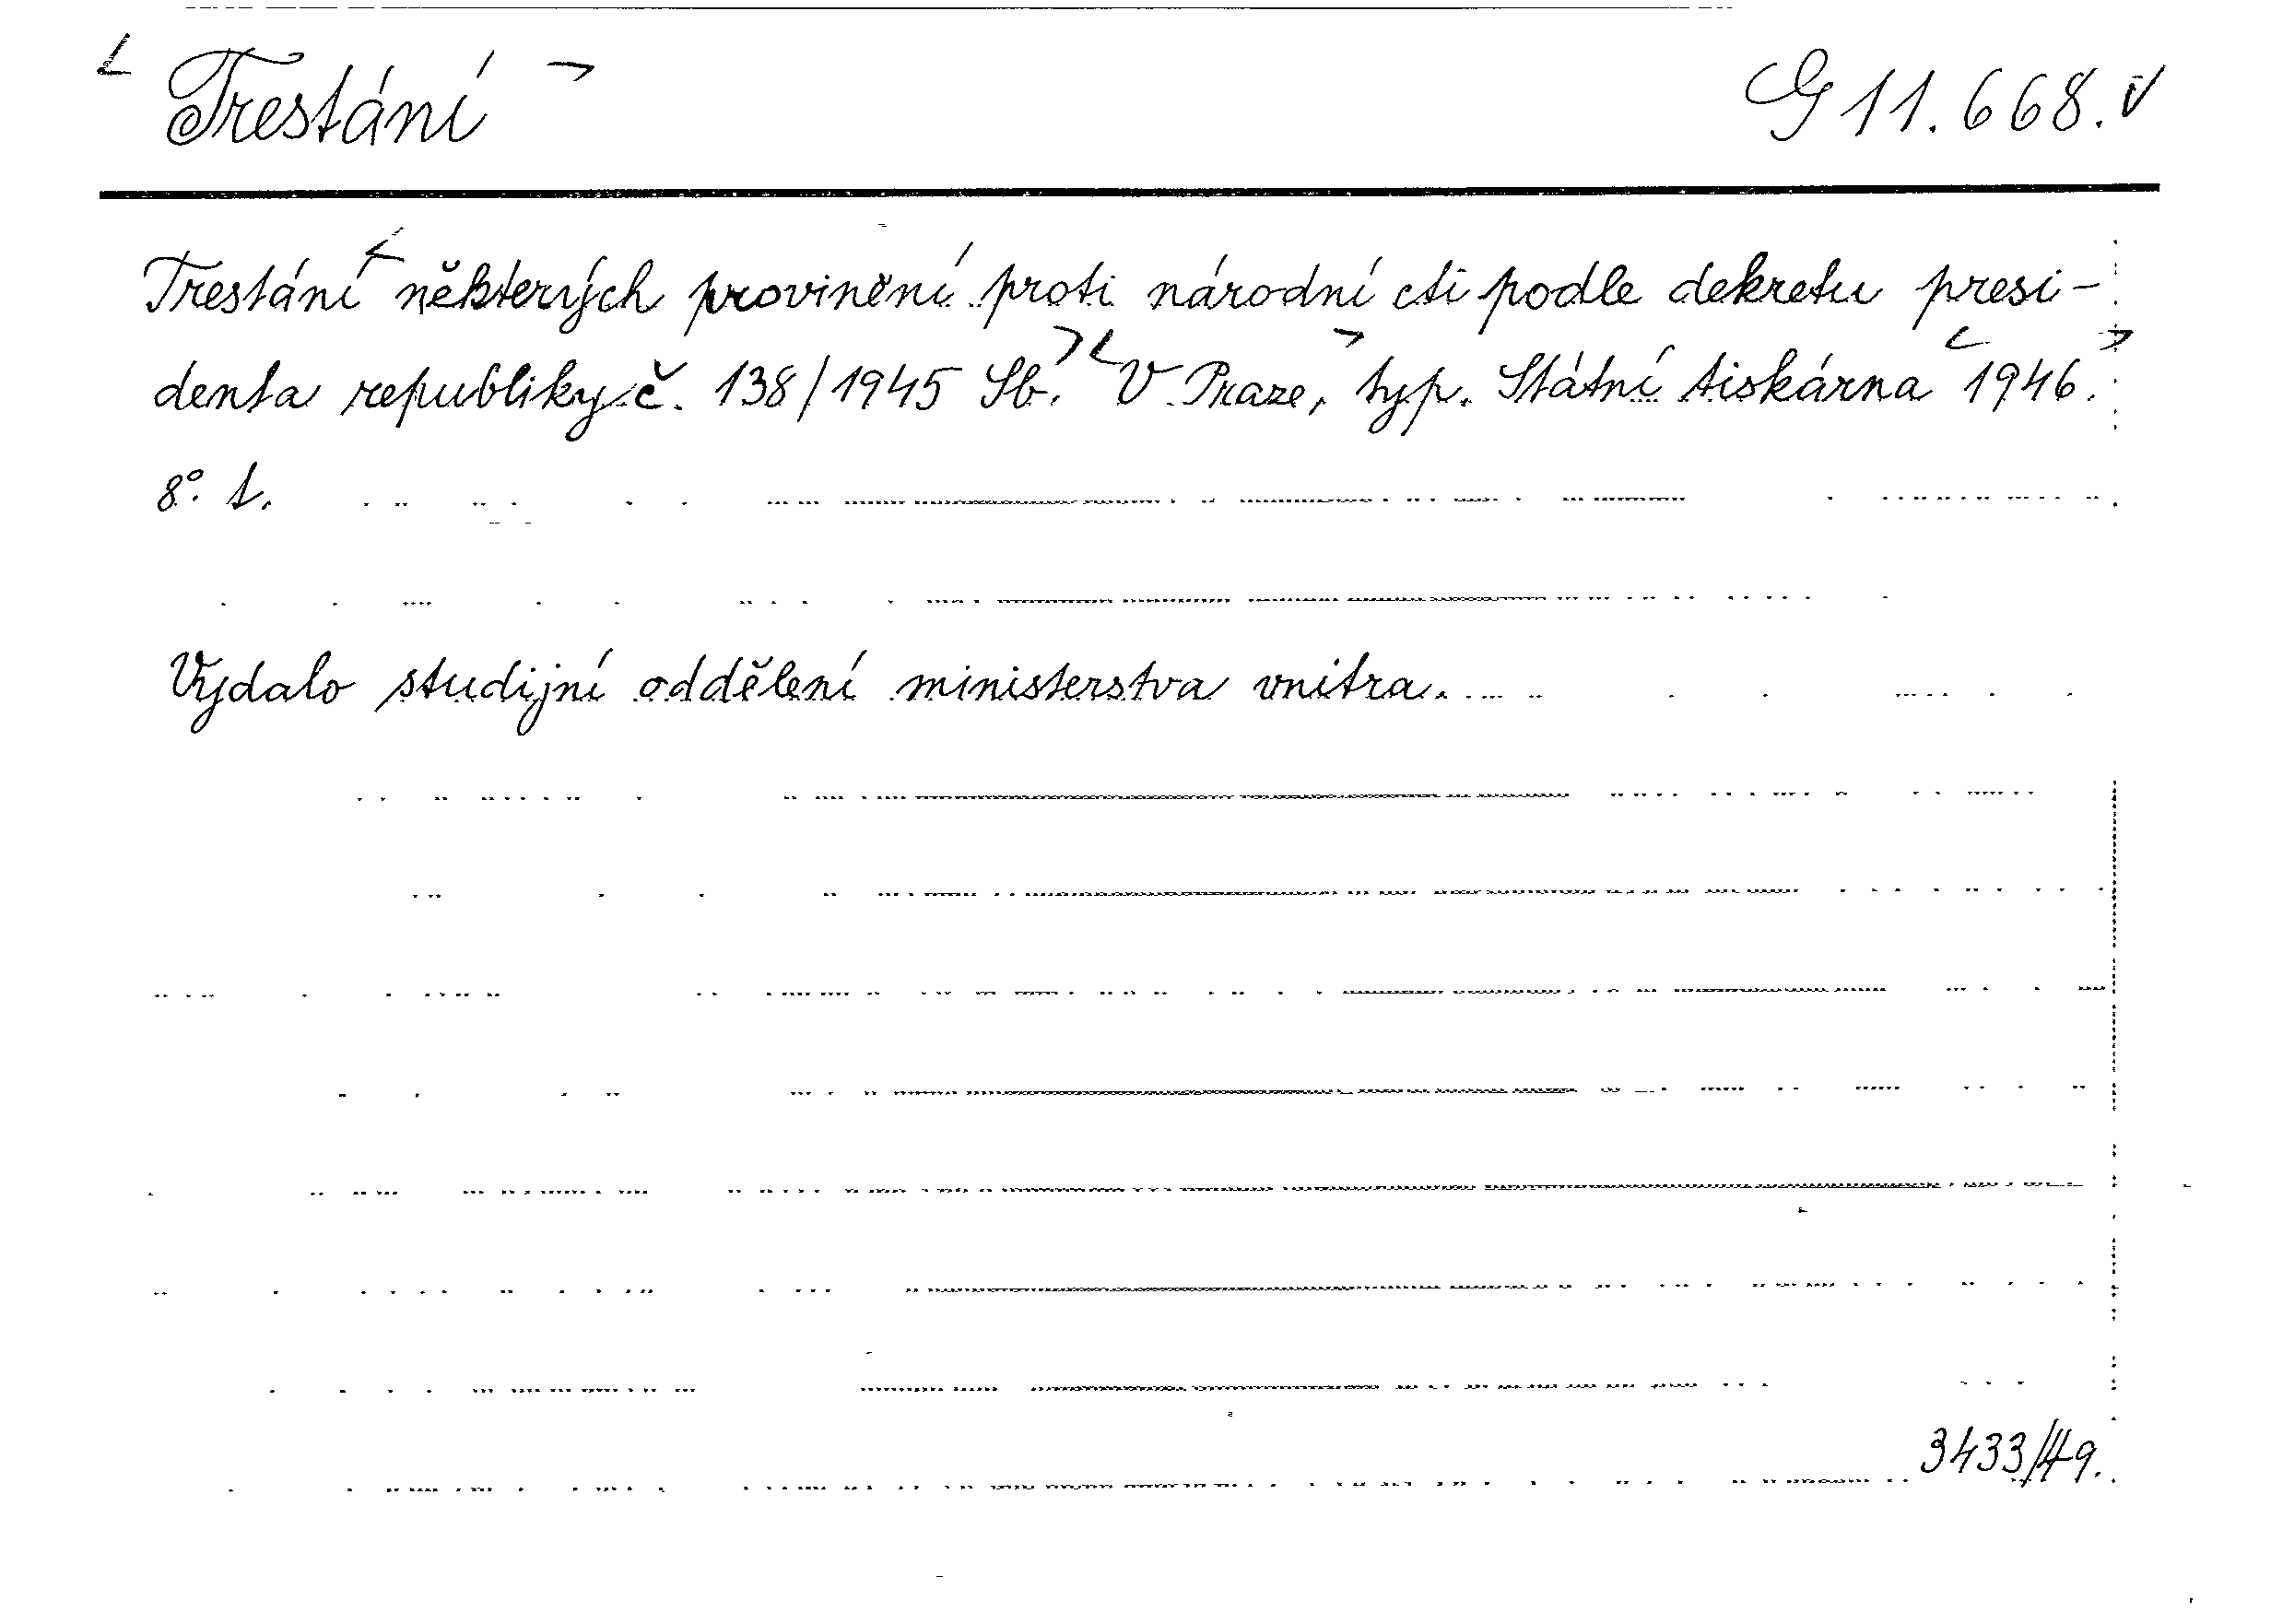 Trestání
G 11.668.
Trestání některých provinění proti národní cti podle dekretu presi-
denta republiky č. 138/1945 Sb. V Praze, typ. Státní tiskárna 1946.
8°. 1.
Vydalo studijní oddělení ministerstva vnitra.
3433/49.